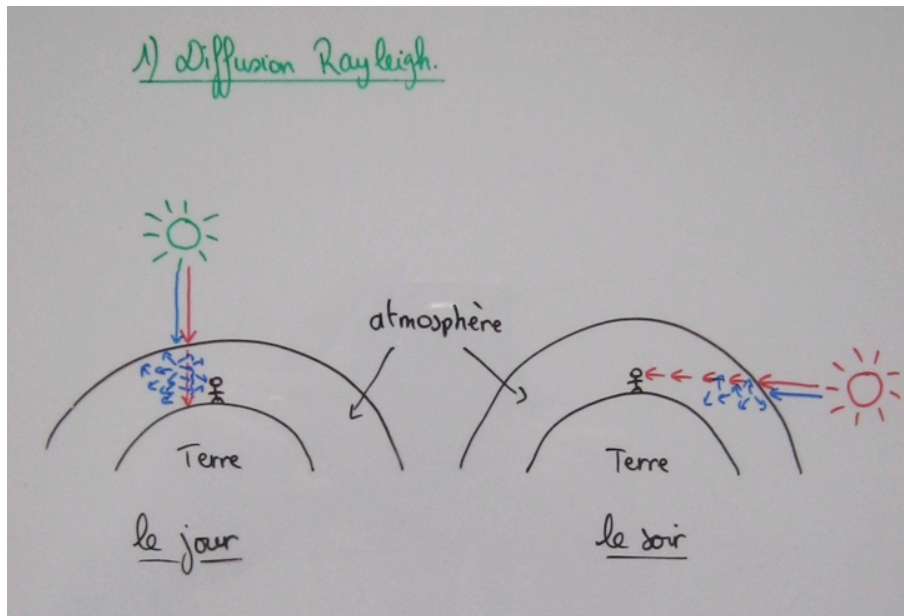 1) Diffusion Rayleigh.
atmosphère
Terre
Terre
le jour
le soir